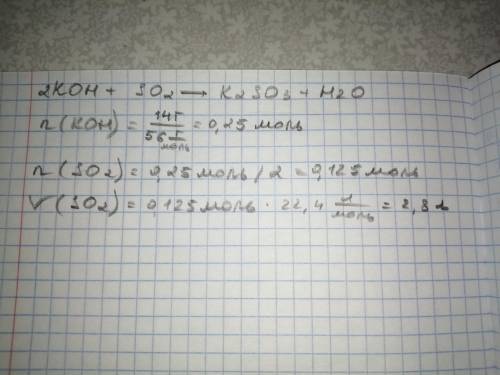 2KOH + SO2 → K2SO3 + H2O
n(KOH) = 14г / 56 г/моль = 0,25 моль
n(SO2) = 0,25 моль / 2 = 0,125 моль
V(SO2) = 0,125 моль · 22,4 л/моль = 2,8 л